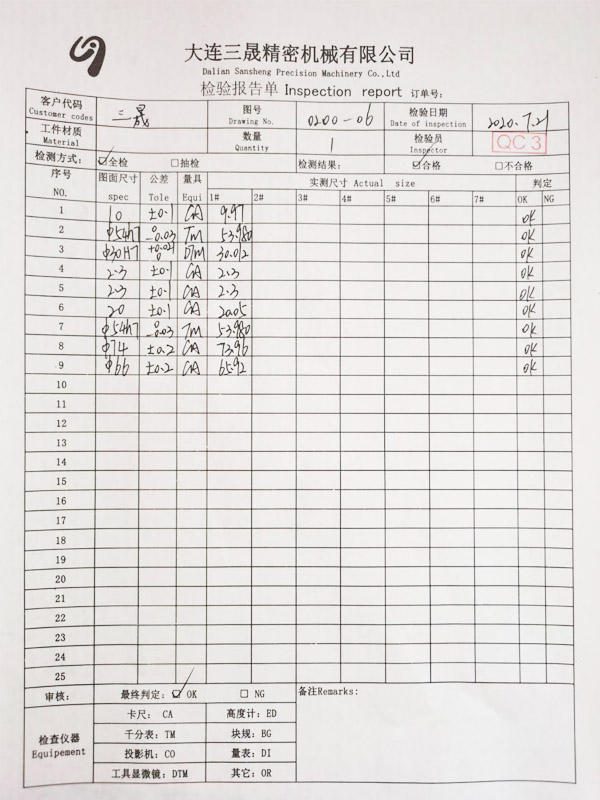 大连三晟精密机械有限公司
Dalian Sansheng Precision Machinery Co.,Ltd
检验报告单 Inspection report 订单号:
客户代码 Customer codes 三晟 图号 Drawing No. 0200-06 检验日期 Date of inspection 2020.7.21
工件材质 Material 数量 Quantity 1 检验员 Inspector QC3
检测方式: ☑全检 □抽检 检测结果: ☑合格 □不合格
序号 NO. 图面尺寸 spec 公差 Tole 量具 Equi 实测尺寸 Actual size 判定
1# 2# 3# 4# 5# 6# 7# OK NG
1 10 ±0.1 CA 9.97 OK
2 φ54h7 0 -0.03 TM 53.980 OK
3 φ30H7 +0.021 0 DTM 30.012 OK
4 2.3 ±0.1 CA 2.3 OK
5 2.3 ±0.1 CA 2.3 OK
6 20 ±0.1 CA 20.05 OK
7 φ54h7 0 -0.03 TM 53.980 OK
8 φ74 ±0.2 CA 73.96 OK
9 φ66 ±0.2 CA 65.92 OK
10
11
12
13
14
15
16
17
18
19
20
21
22
23
24
25
审核: 最终判定: ☑ OK □ NG 备注Remarks:
检查仪器 Equipement
卡尺: CA 高度计: ED
千分表: TM 块规: BG
投影机: CO 量表: DI
工具显微镜: DTM 其它: OR